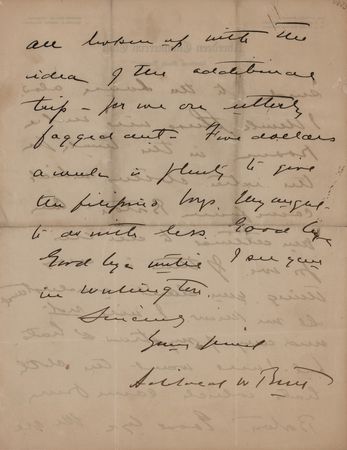 all broken up with the
idea of the additional
trip – for we are utterly
fagged out – Five dollars
a week is plenty to give
the filipino boys. They ought
to do with less. Good bye
Good bye until I see you
in Washington.
Sincerely
Your friend
Archibald W Butt